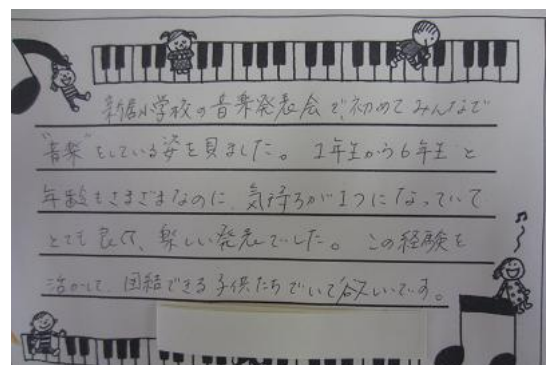 新居小学校の音楽発表会で、初めてみんなで
"音楽"をしている姿を見ました。1年生から6年生と
年齢もさまざまなのに、気持ちが1つになっていて
とても良い、楽しい発表でした。この経験を
活かして、団結できる子供たちでいて欲しいです。